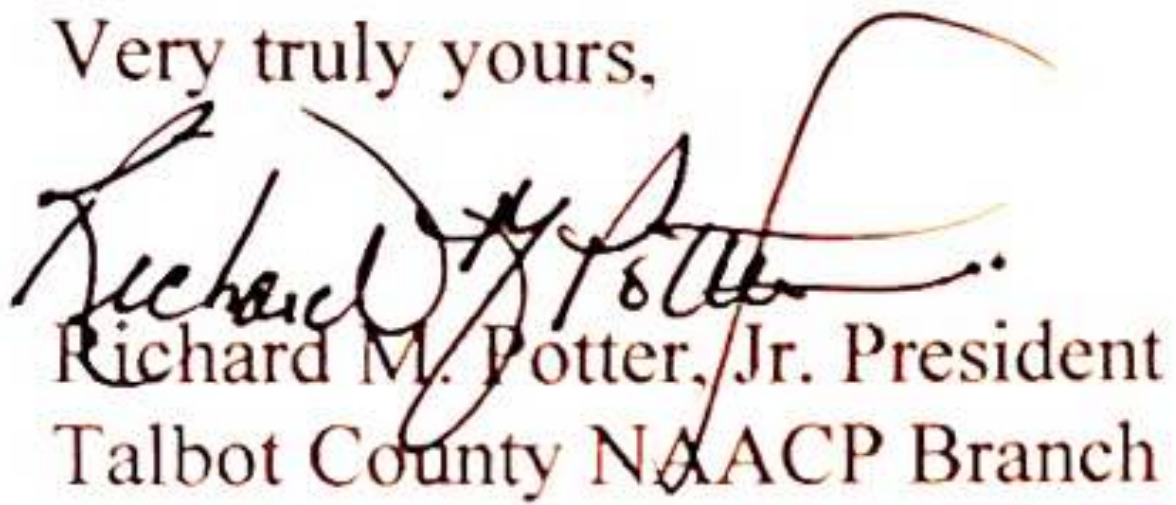 Very truly yours,
Richard M Potter
Richard M. Potter, Jr. President
Talbot County NAACP Branch